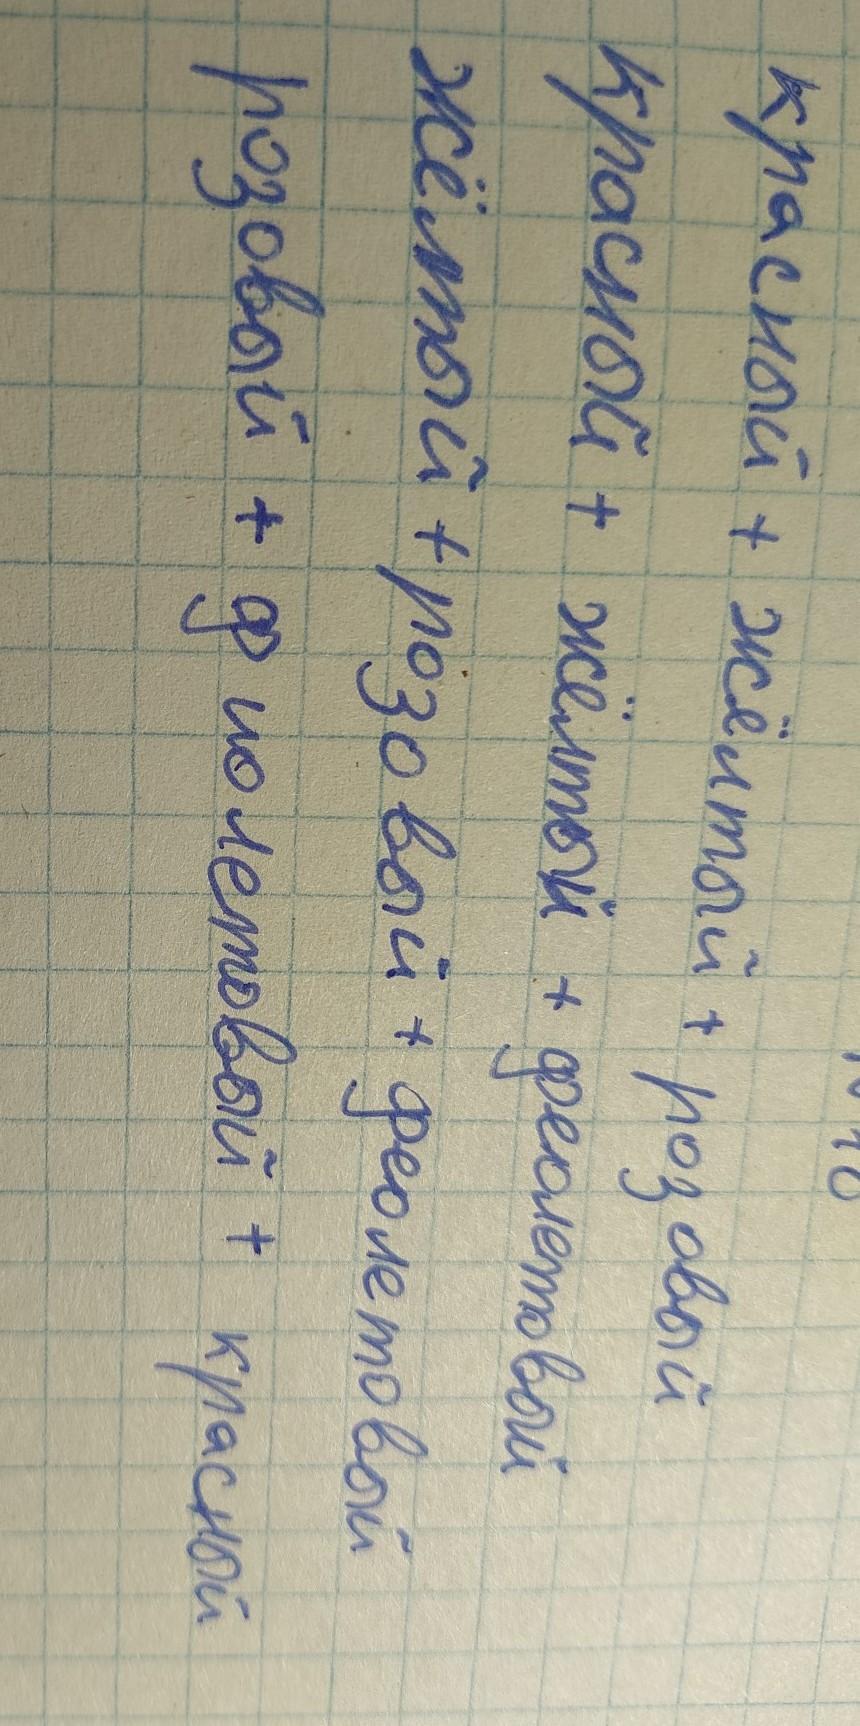 красный + жёлтый + розовый
красный + жёлтый + феолетовый
жёлтый + розовый + феолетовый
розовый + фиолетовый + красный